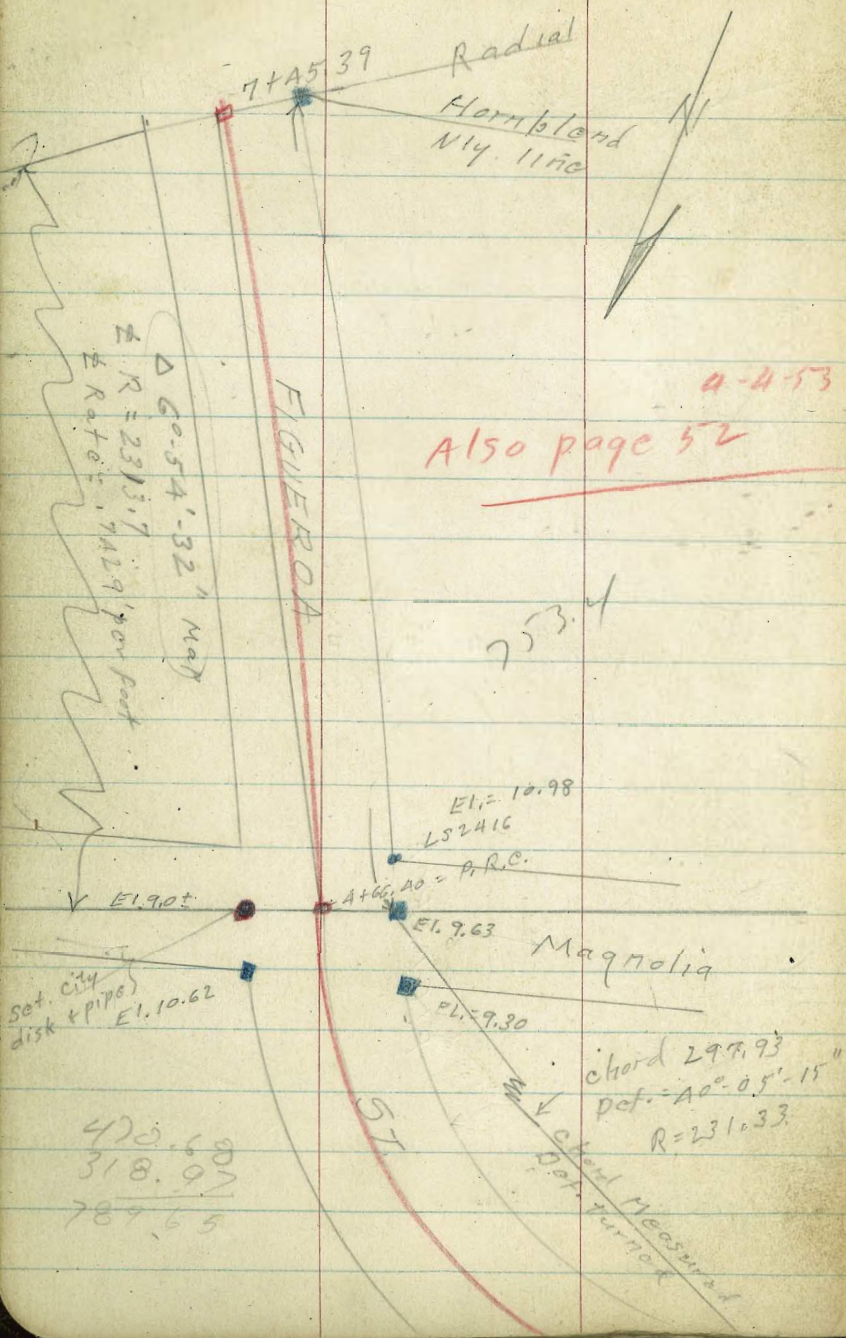 7+45.39
Radial
Hornblend
Nly. line
N
4-4-53
Also page 52
Δ 6°-54'-32" Map
℄ R = 2313.7
℄ Rate = .7429' per foot
FIGUEROA
753.4
El. = 10.98
LS 2416
4+66.40 = P.R.C.
El. 9.0±
El. 9.63
Magnolia
set. city
disk + pipe
El. 10.62
El. = 9.30
chord 297.93
Def. = 40°-05'-15"
R = 231.33
ST.
chord Measured
Def. turned
470.68
318.97
789.65